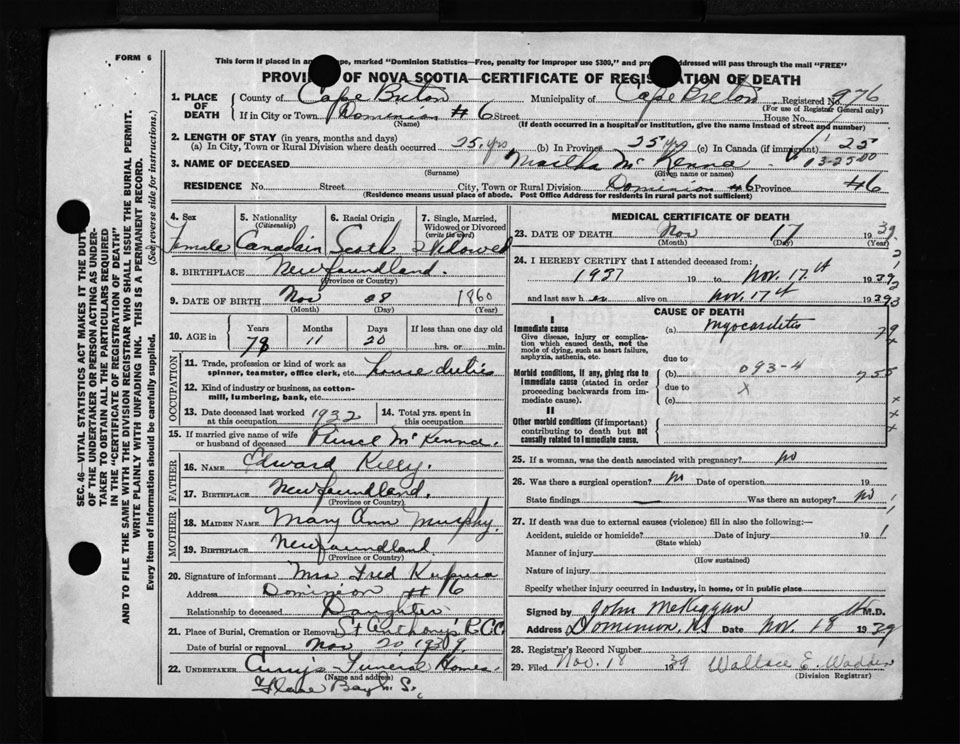 FORM 6
This form if placed in an ope, marked "Dominion Statistics—Free, penalty for improper use $300," and pr addressed will pass through the mail "FREE"
PROVIN OF NOVA SCOTIA—CERTIFICATE OF REGIS ATION OF DEATH
1. PLACE OF DEATH County of Cape Breton Municipality of Cape Breton Registered No. 976
(For use of Registrar General only)
If in City or Town Dominion #6 Street House No.
(Name) (If death occurred in a hospital or institution, give the name instead of street and number)
2. LENGTH OF STAY (in years, months and days)
(a) In City, Town or Rural Division where death occurred 25 yrs (b) In Province 25 yrs (c) In Canada (if immigrant) 25
3. NAME OF DECEASED Martha McKenna
(Surname) (Given name or names)
RESIDENCE No. Street City, Town or Rural Division Dominion #6 Province #6
(Residence means usual place of abode. Post Office Address for residents in rural parts not sufficient)
4. Sex Female
5. Nationality (Citizenship) Canadain
6. Racial Origin Scoth
7. Single, Married, Widowed or Divorced (write the word) Widowed
8. BIRTHPLACE Newfoundland.
(Province or Country)
9. DATE OF BIRTH Nov 28 1860
(Month) (Day) (Year)
10. AGE in Years 78 Months 11 Days 20 If less than one day old hrs. or min.
OCCUPATION
11. Trade, profession or kind of work as spinner, teamster, office clerk, etc. house duties
12. Kind of industry or business, as cotton-mill, lumbering, bank, etc.
13. Date deceased last worked at this occupation 1932 14. Total yrs. spent in this occupation
15. If married give name of wife or husband of deceased McKenna.
FATHER
16. NAME Edward Kelly.
17. BIRTHPLACE Newfoundland.
(Province or Country)
MOTHER
18. MAIDEN NAME Mary Ann Murphy.
19. BIRTHPLACE Newfoundland
(Province or Country)
20. Signature of informant Mrs Fred
Address Dominion #6
Relationship to deceased Daughter.
21. Place of Burial, Cremation or Removal St Anthony's R.C.C
Date of burial or removal Nov 20 1939.
22. UNDERTAKER Curry's Funeral Homes.
(Name and address)
Glace Bay N.S.
MEDICAL CERTIFICATE OF DEATH
23. DATE OF DEATH Nov 17 1939
(Month) (Day) (Year)
24. I HEREBY CERTIFY that I attended deceased from:
1937 19 to Nov. 17th 1939
and last saw her alive on Nov. 17th 1939
CAUSE OF DEATH
I
Immediate cause (a) Myocarditis
Give disease, injury or complication which caused death, not the mode of dying, such as heart failure, asphyxia, asthenia, etc.
due to
Morbid conditions, if any, giving rise to immediate cause (stated in order proceeding backwards from immediate cause). (b) 093-4
due to X
(c)
II
Other morbid conditions (if important) contributing to death but not causally related to immediate cause.
25. If a woman, was the death associated with pregnancy? no
26. Was there a surgical operation? No Date of operation 19
State findings Was there an autopsy? no
27. If death was due to external causes (violence) fill in also the following:—
Accident, suicide or homicide? Date of injury 19
(State which)
Manner of injury
(How sustained)
Nature of injury
Specify whether injury occurred in industry, in home, or in public place
Signed by John McKiggan M.D.
Address Dominion, NS Date Nov. 18 1939
28. Registrar's Record Number
29. Filed Nov. 18 1939 Wallace E. Wadden
(Division Registrar)
SEC. 46—VITAL STATISTICS ACT MAKES IT THE DUTY
OF THE UNDERTAKER OR PERSON ACTING AS UNDER-
TAKER TO OBTAIN ALL THE PARTICULARS REQUIRED
IN THE "CERTIFICATE OF REGISTRATION OF DEATH"
AND TO FILE THE SAME WITH THE DIVISION REGISTRAR WHO SHALL ISSUE THE BURIAL PERMIT.
WRITE PLAINLY WITH UNFADING INK. THIS IS A PERMANENT RECORD.
Every item of information should be carefully supplied. (See reverse side for instructions.)